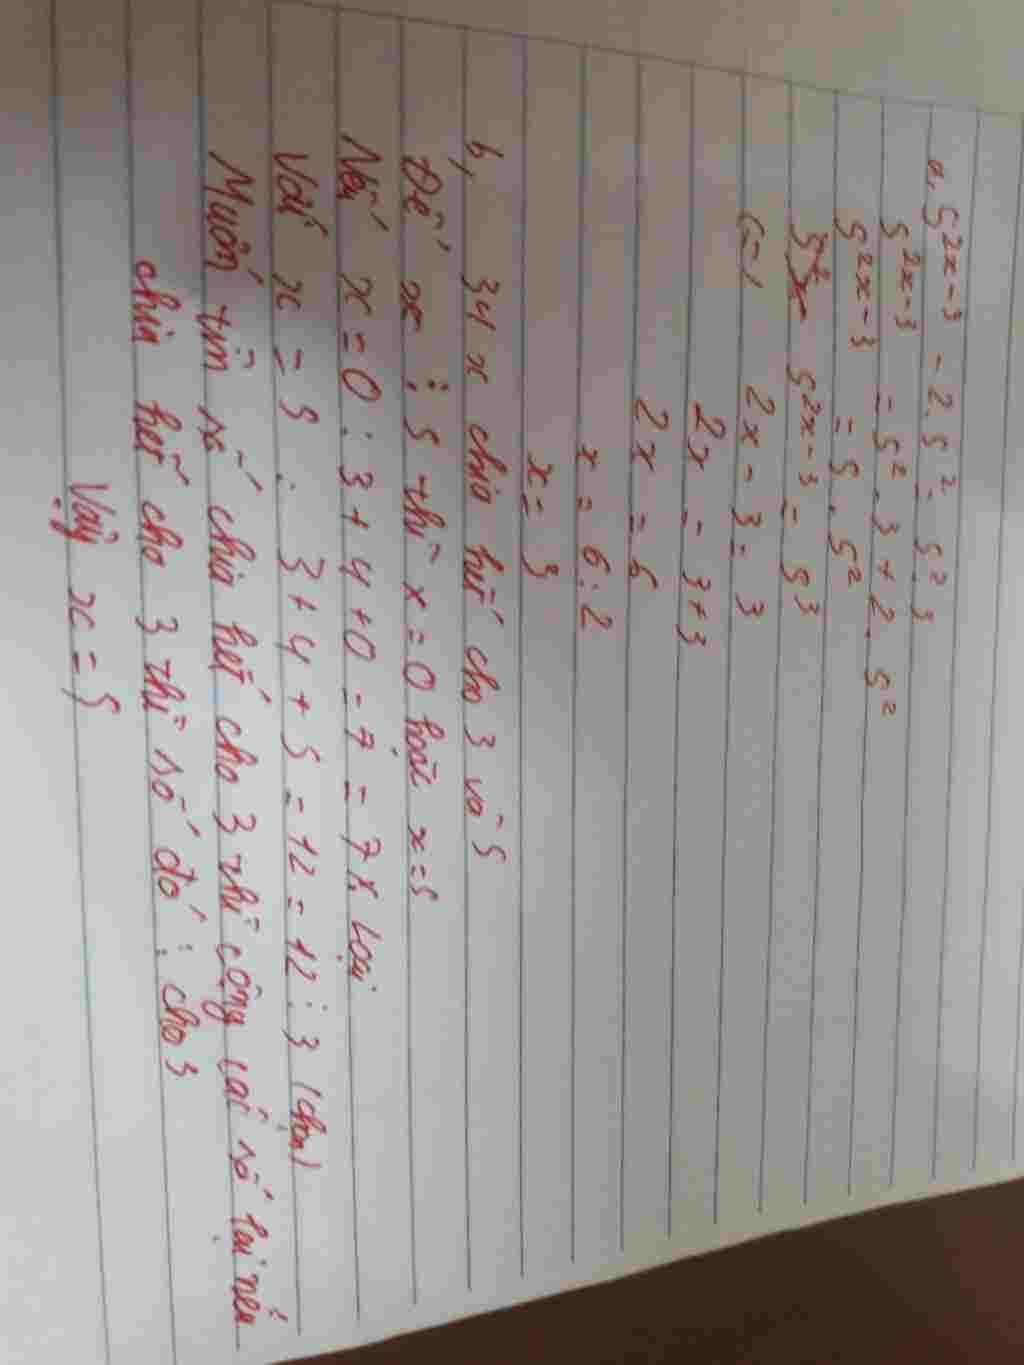 a, 5^{2x-3} - 2.5² = 5².3
5^{2x-3} = 5².3 + 2.5²
5^{2x-3} = 5.5²
5^{2x-3} = 5³
(=) 2x - 3 = 3
2x = 3+3
2x = 6
x = 6:2
x = 3
b, 34x chia hết cho 3 và 5
Để x ⋮ 5 thì x = 0 hoặc x = 5
Nếu x = 0 : 3 + 4 + 0 = 7 = 7 ⋮̸ Loại
Với x = 5 : 3 + 4 + 5 = 12 = 12 ⋮ 3 (chọn)
Muốn tìm số chia hết cho 3 thì cộng các số lại nếu
chia hết cho 3 thì số đó ⋮ cho 3
Vậy x = 5